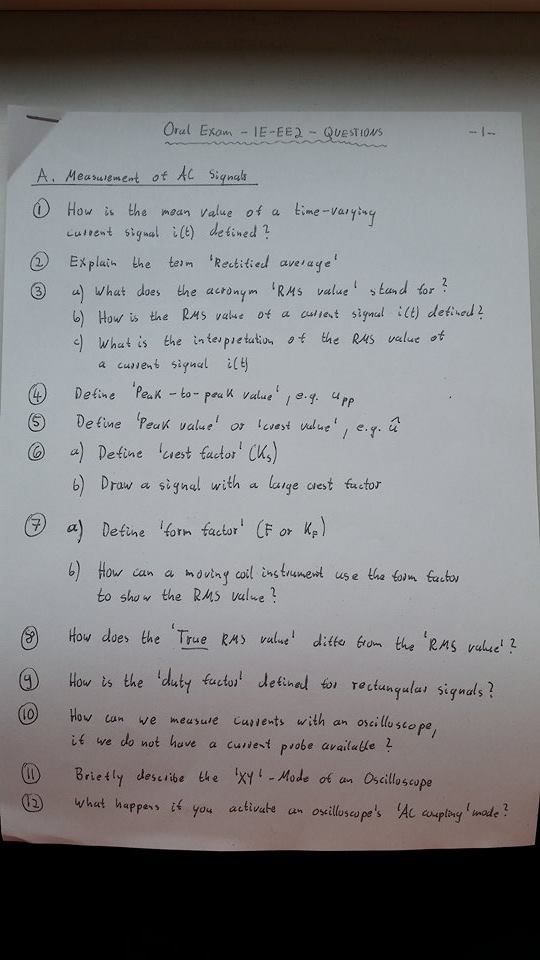 Oral Exam - IE-EE2 - QUESTIONS -1-
A. Measurement of AC Signals
1 How is the mean value of a time-varying
current signal i(t) defined?
2 Explain the term 'Rectified average'
3 a) What does the acronym 'RMS value' stand for?
b) How is the RMS value of a current signal i(t) defined?
c) What is the interpretation of the RMS value of
a current signal i(t)
4 Define 'Peak-to-peak value', e.g. upp
5 Define 'Peak value' or 'crest value', e.g. û
6 a) Define 'crest factor' (Ks)
b) Draw a signal with a large crest factor
7 a) Define 'form factor' (F or KF)
b) How can a moving coil instrument use the form factor
to show the RMS value?
8 How does the 'True RMS value' differ from the 'RMS value'?
9 How is the 'duty factor' defined for rectangular signals?
10 How can we measure currents with an oscilloscope,
if we do not have a current probe available?
11 Briefly describe the 'XY'-Mode of an Oscilloscope
12 What happens if you activate an oscilloscope's 'AC coupling' mode?